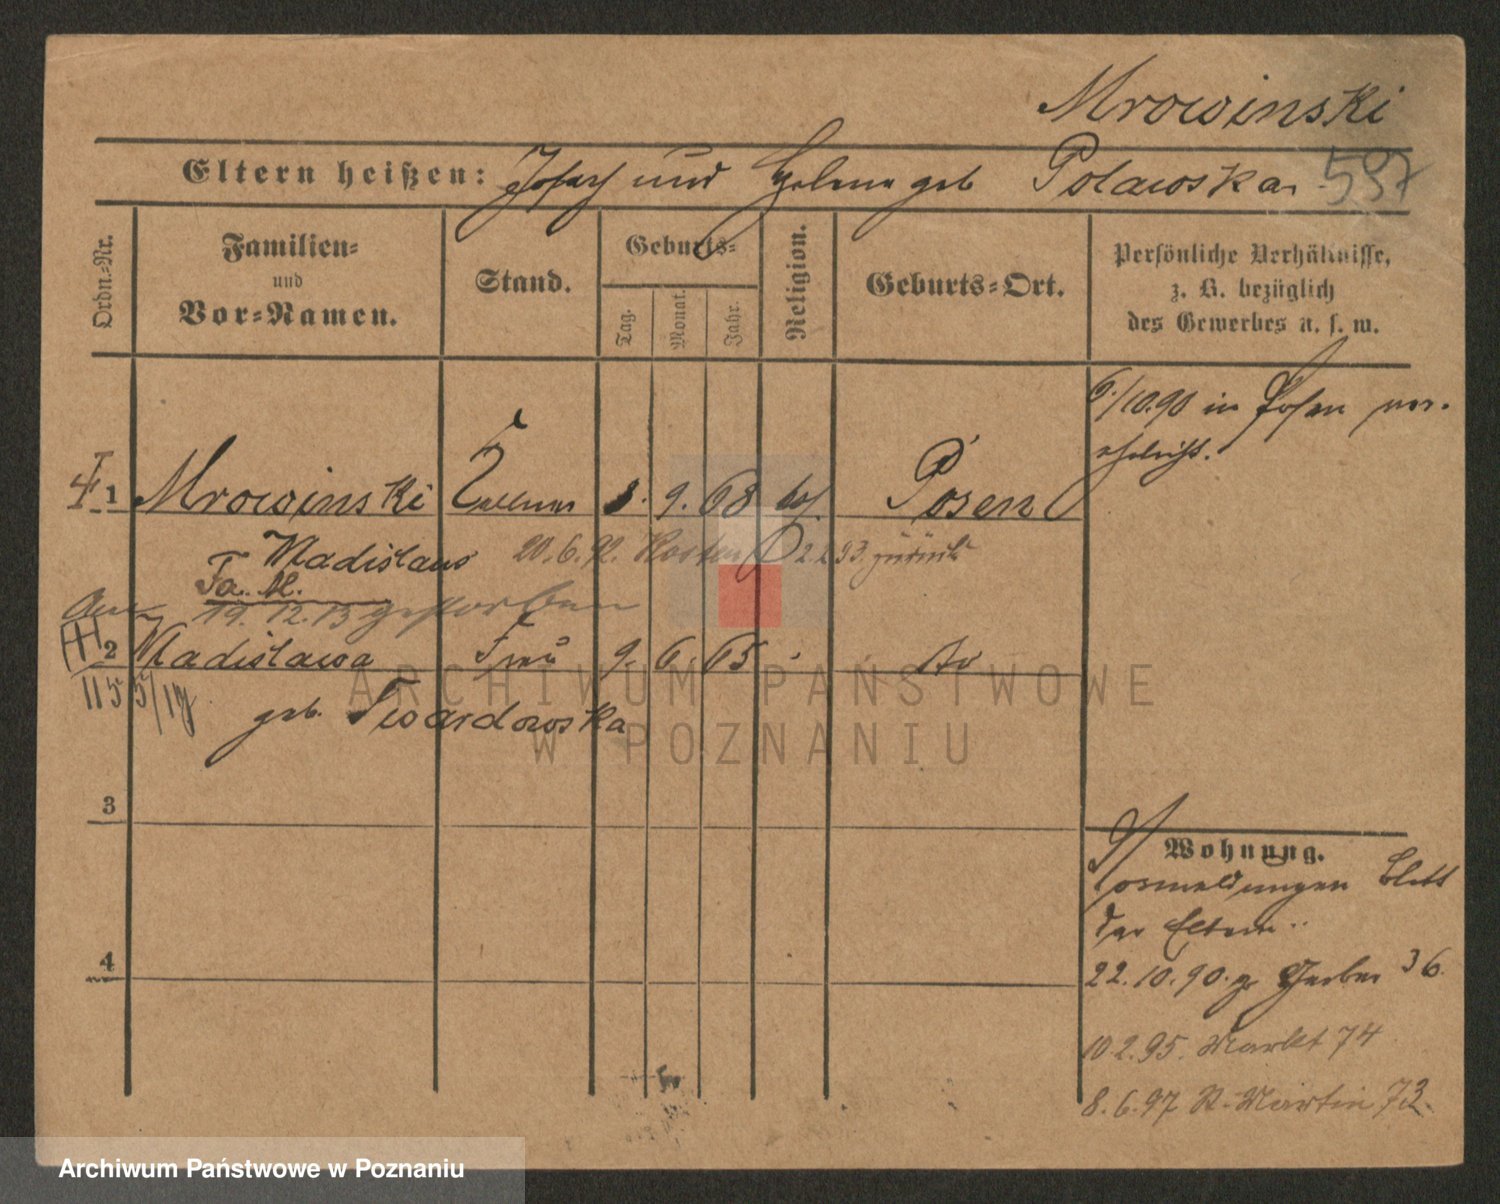 Mrowinski
Eltern heißen: Josef und Helene geb Polawska
597
Ordn.-Nr.
Familien-
und
Vor-Namen.
Stand.
Geburts-
Tag.
Monat.
Jahr.
Religion.
Geburts-Ort.
Persönliche Verhältnisse,
z. B. bezüglich
des Gewerbes u. s. w.
6./10.90 in Posen ver-
ehelicht.
1 Mrowinski 8. 9. 68 kat. Posen
Wladislaus 20.6.92. Kosten 2.2.93. zurück
Fa. M.
19.12.13 gestorben
2 Wladislawa Frau 9. 6. 65 do
1155/19
geb. Twardowska
3
4
Wohnung.
Vormeldungen Blatt
der Eltern
22.10.90. gr Gerber 36.
10.2.95. Markt 74
8.6.97 St. Martin 73.
ARCHIWUM PAŃSTWOWE
W POZNANIU
Archiwum Państwowe w Poznaniu